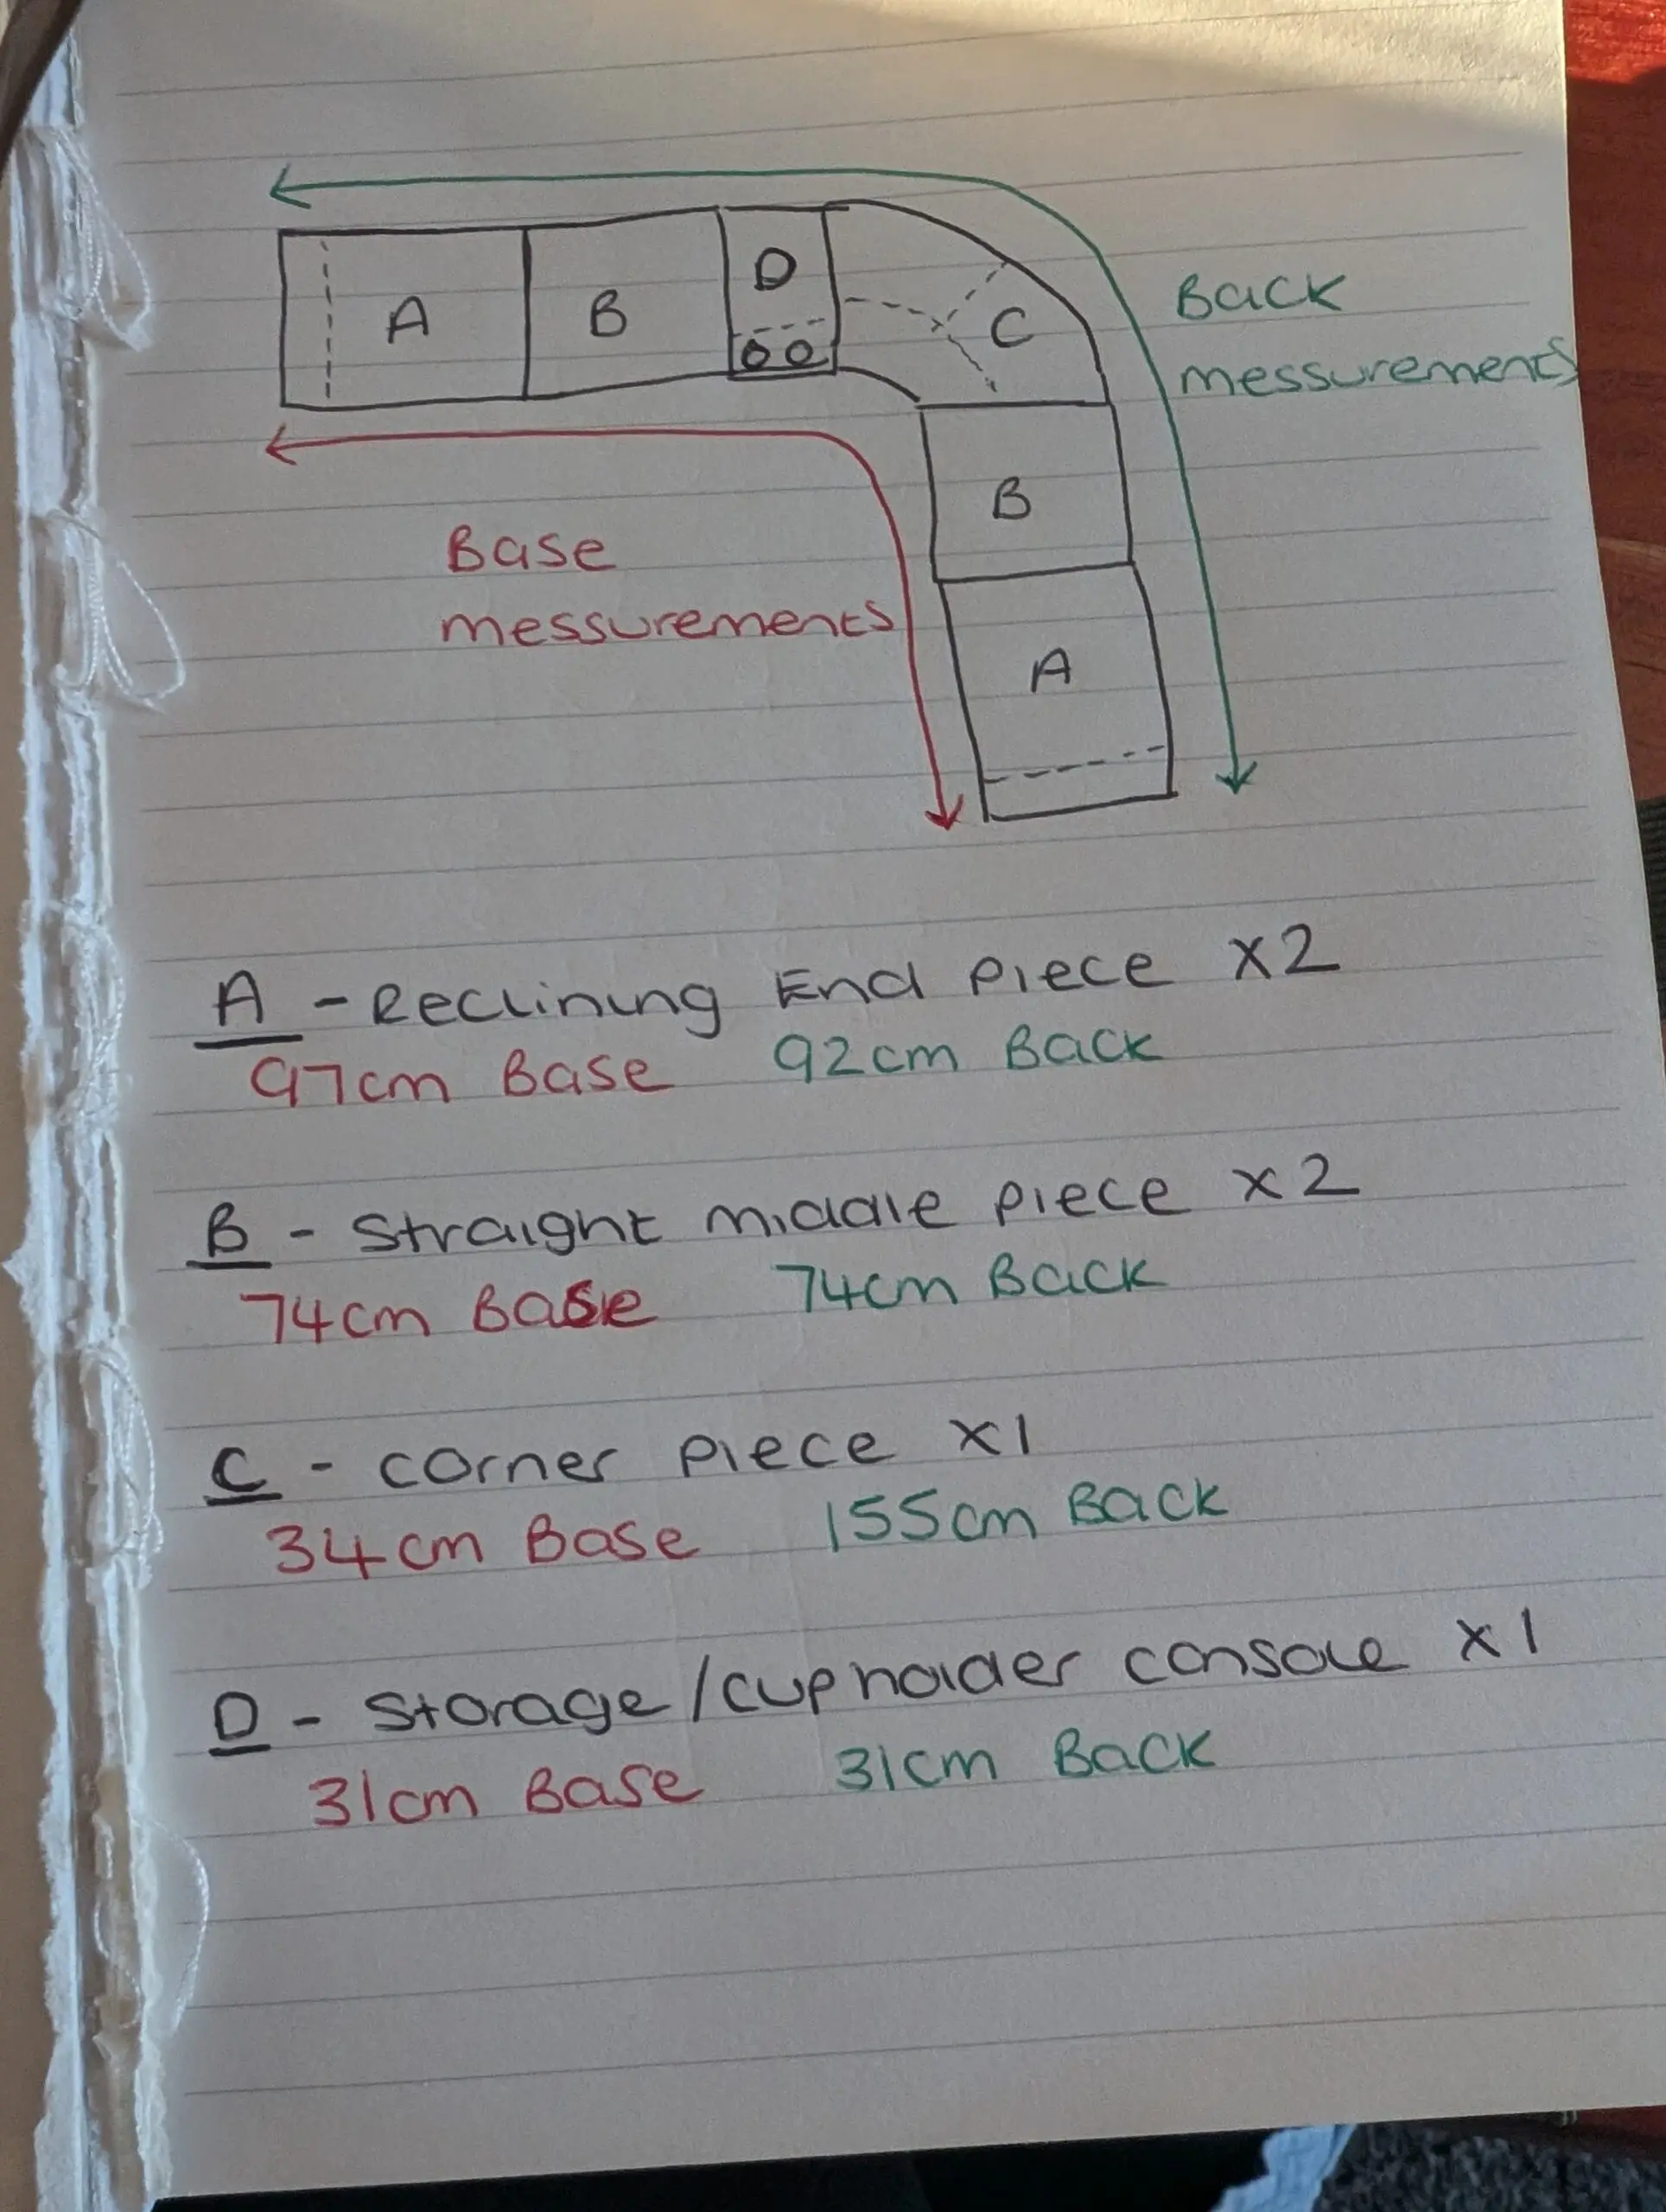 A
B
D
C
Back
messurements
B
Base
messurements
A
A - Reclining End Piece x2
97cm Base 92cm Back
B - Straight middle piece x2
74cm Base 74cm Back
C - corner piece x1
34cm Base 155cm Back
D - Storage/cupholder console x1
31cm Base 31cm Back